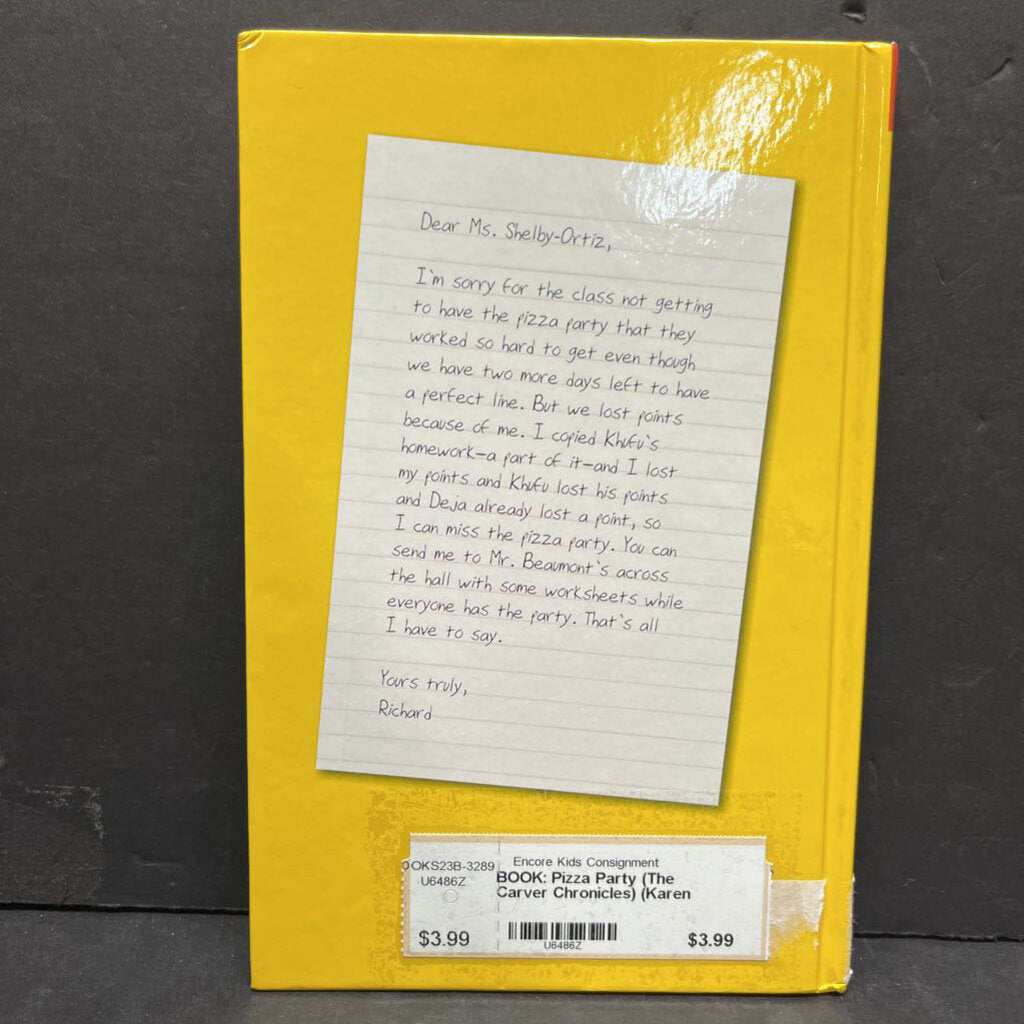 Dear Ms. Shelby-Ortiz,
I'm sorry for the class not getting
to have the pizza party that they
worked so hard to get even though
we have two more days left to have
a perfect line. But we lost points
because of me. I copied Khufu's
homework—a part of it—and I lost
my points and Khufu lost his points
and Deja already lost a point, so
I can miss the pizza party. You can
send me to Mr. Beaumont's across
the hall with some worksheets while
everyone has the party. That's all
I have to say.
Yours truly,
Richard
OKS23B-3289
U6486Z
$3.99
Encore Kids Consignment
BOOK: Pizza Party (The
Carver Chronicles) (Karen
U6486Z
$3.99